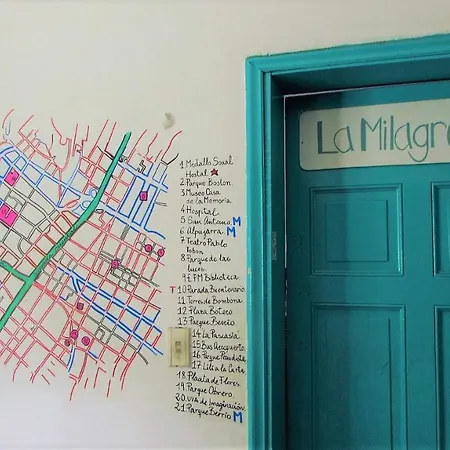 1 Medallo Social
Hostal
2 Parque Boston
3 Museo Casa
de la Memoria
4 Hospital
5 San Antonio M
6 Alpujarra M
7 Teatro Pablo
Tobon
8 Parque de las
luces
9 EPM Biblioteca
T 10 Parada Buenos
11 Torres de Bombona
12 Plaza Botero
13 Parque Berrio
14 La Pascasia
15 Bus Aeropuerto
16 Parque Periodista
17 Lili a la Carta
18 Placita de Flores
19 Parque Obrero
20 UVA de Imaginación
21 Parque Berrío M
La Milagro